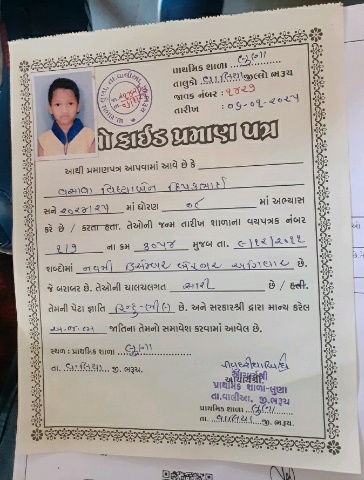 પ્રાથમિક શાળા લુણા
તાલુકો વાલિયા જીલ્લો ભરૂચ
જાવક નંબર : ૧૪૨૧
તારીખ : ૦૬-૦૧-૨૦૨૫
બોનોફાઈડ પ્રમાણ પત્ર
આથી પ્રમાણપત્ર આપવામાં આવે છે કે
વસાવા
સને ૨૦૨૪/૨૫ માં ધોરણ ૦૮ માં અભ્યાસ
કરે છે / કરતા હતા. તેઓની જન્મ તારીખ શાળાના વયપત્રક નંબર
૨/૧ ના ક્રમ ૩૦૫૪ મુજબ તા. ૯/૧૨/૨૦૧૧
શબ્દોમાં નવમી ડિસેમ્બર બે હજાર અગિયાર છે.
જે બરાબર છે. તેઓની ચાલચલગત સારી છે.
તેમની પેટા જ્ઞાતિ હિન્દુ-ભીલ છે. અને સરકારશ્રી દ્વારા માન્ય કરેલ
અ.જ.જા જાતિના તેમનો સમાવેશ કરવામાં આવેલ છે.
સ્થળ : પ્રાથમિક શાળા લુણા
તા. વાલિયા જી. ભરૂચ.
આચાર્યશ્રી
પ્રાથમિક શાળા-લુણા
તા.વાલીઆ. જી.ભરૂચ
પ્રાથમિક શાળા લુણા
તા. વાલિયા જી. ભરૂચ.